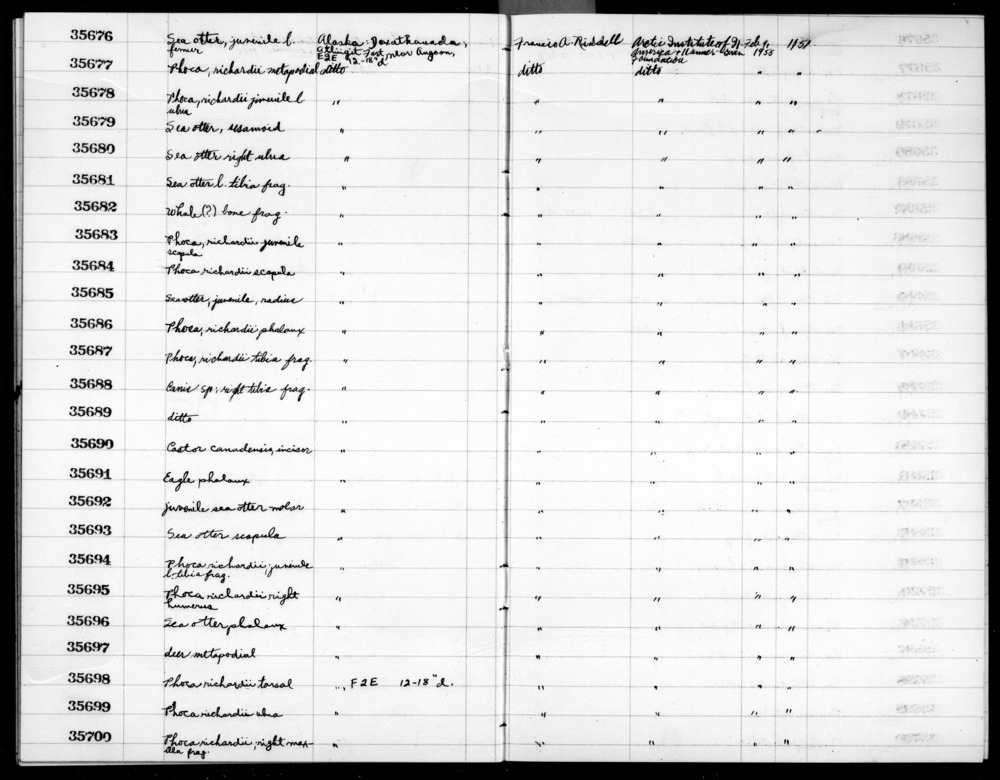 35676 Sea otter, juvenile l. femur Alaska: Daxathkanada, Francis A. Riddell Arctic Institute of 21 Feb 1151
Tlingit Fort, near Angoon, America + Wenner-Gren 1955
E2E 12-18" d Foundation
35677 Phoca, richardii metapodial ditto ditto ditto " "
35678 Phoca, richardii juvenile l. ulna " " " " "
35679 Sea otter, sesamoid " " " " "
35680 Sea otter right ulna " " " " "
35681 Sea otter l. tibia frag. " " " " "
35682 Whale(?) bone frag. " " " " "
35683 Phoca, richardii juvenile scapula " " " " "
35684 Phoca richardii scapula " " " " "
35685 Sea otter, juvenile, radius " " " " "
35686 Phoca, richardii phalanx " " " " "
35687 Phoca, richardii tibia frag. " " " " "
35688 Canis sp; right tibia frag. " " " " "
35689 ditto " " " " "
35690 Castor canadensis, incisor " " " " "
35691 Eagle phalanx " " " " "
35692 juvenile sea otter molar " " " " "
35693 Sea otter scapula " " " " "
35694 Phoca richardii; juvenile l. tibia frag. " " " " "
35695 Phoca richardii right humerus " " " " "
35696 Sea otter phalanx " " " " "
35697 deer metapodial " " " " "
35698 Phoca richardii tarsal ", F2E 12-18" d. " " " "
35699 Phoca richardii ulna " " " " "
35700 Phoca richardii, right max-
illa frag. " " " " "